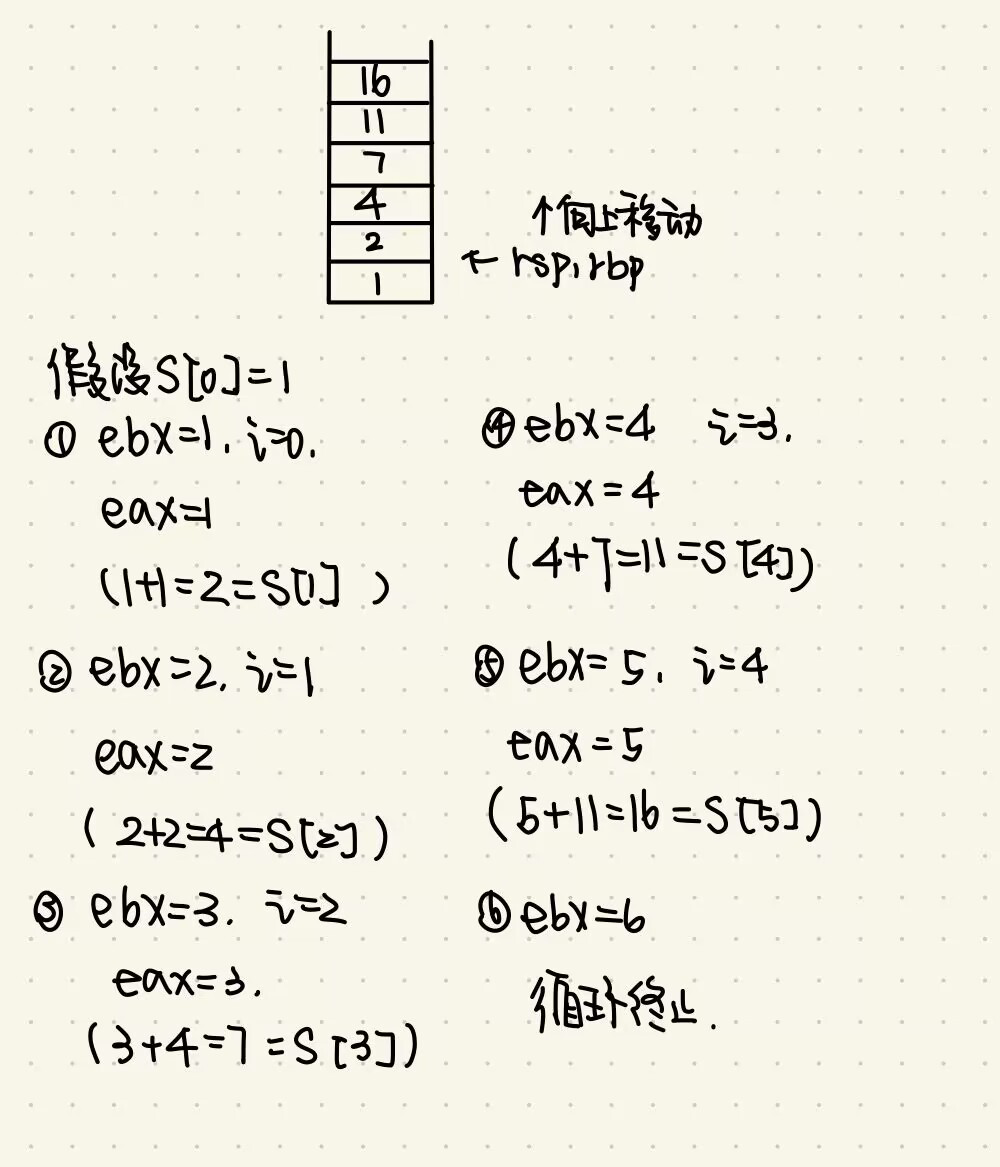 16
11
7
4
2
1
↑向上移动
← rsp, rbp
假设S[0]=1
① ebx=1. i=0.
eax=1
(1+1=2=S[1] )
② ebx=2. i=1
eax=2
( 2+2=4=S[2] )
③ ebx=3. i=2
eax=3.
(3+4=7=S[3])
④ ebx=4 i=3.
eax=4
(4+7=11=S[4])
⑤ ebx=5. i=4
eax=5
(5+11=16=S[5])
⑥ ebx=6
循环终止.